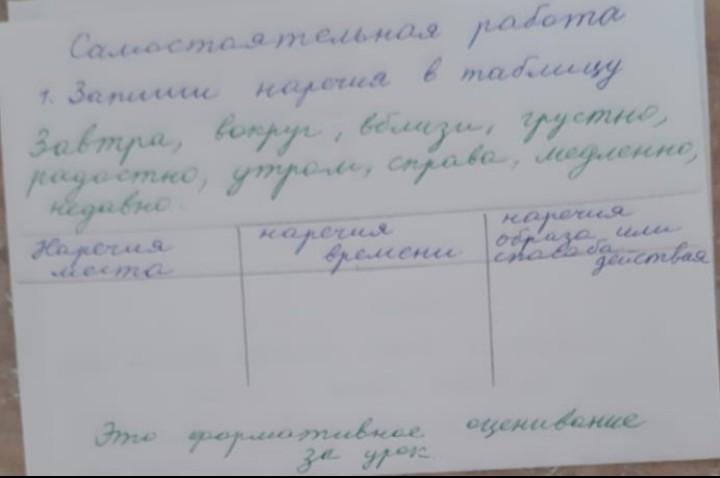 Самостоятельная работа
1. Запиши наречия в таблицу
Завтра, вокруг, вблизи, грустно,
радостно, утром, справа, медленно,
недавно.
Наречия
места
наречия
времени
наречия
образа или
способа
действия
Это формативное оценивание
за урок